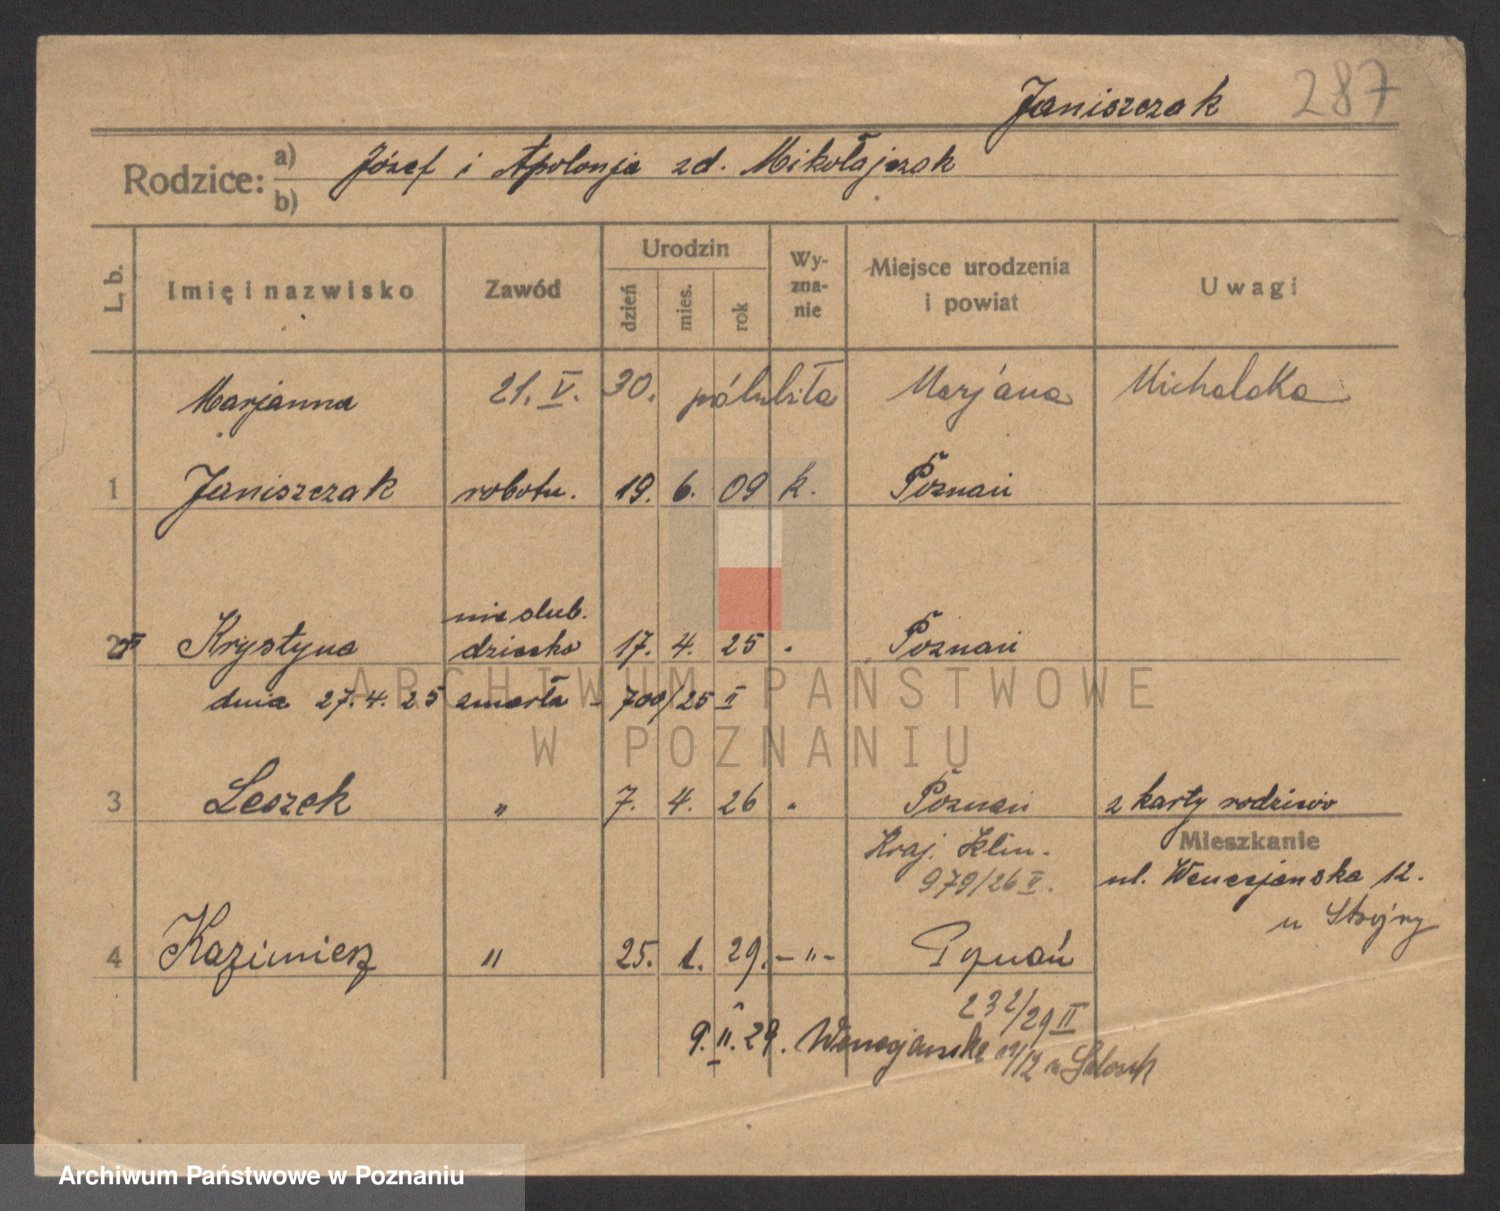 Janiszczak 287
Rodzice: a) Józef i Apolonja zd. Mikołajczak
b)
L. b. Imię i nazwisko Zawód Urodzin dzień mies. rok Wyznanie Miejsce urodzenia i powiat Uwagi
Marjanna 21. V. 30. Marjana Michalska
1 Janiszczak robotn. 19. 6. 09 k. Poznań
nieślub.
2 Krystyna dziecko 17. 4. 25 " Poznań
dnia 27. 4. 25 zmarła - 709/25 II
3 Leszek " 7. 4. 26 " Poznań z karty rodziców
Kraj. Klin. Mieszkanie
979/26 II. ul. Wenecjańska 12.
u Strojny
4 Kazimierz " 25. 1. 29. - " - Poznań
232/29 II
9. II. 29. Wenecjańska
ARCHIWUM PAŃSTWOWE
W POZNANIU
Archiwum Państwowe w Poznaniu